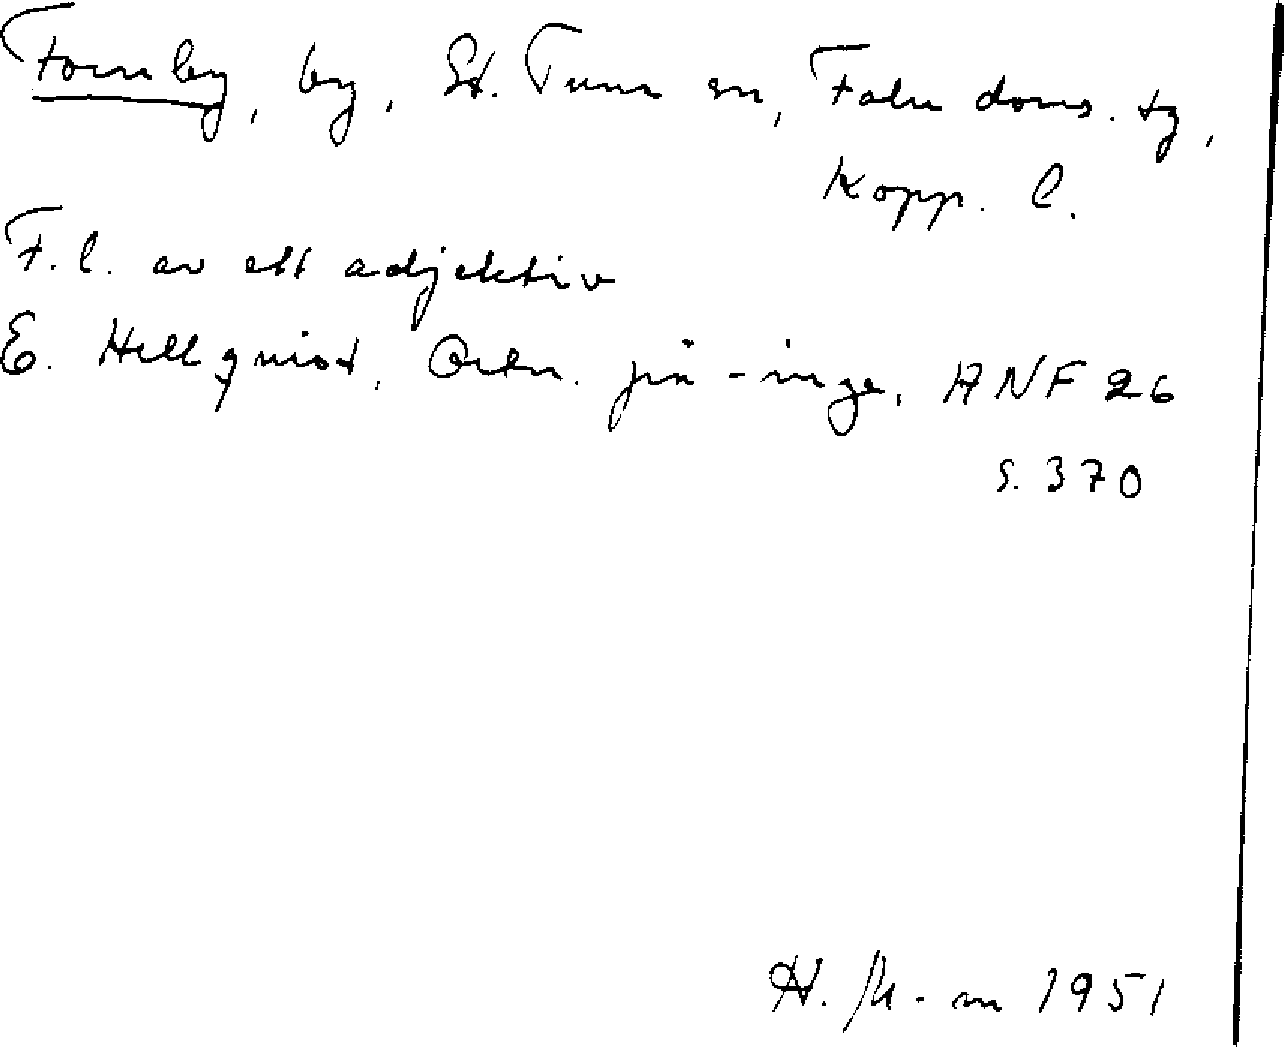 Fornby, by, St. Tuna sn, Falu doms. tg,
Kopp. l.
F. l. av ett adjektiv
E. Hellquist, Ortn. på -inge, ANF 26
s. 370
H. 1951